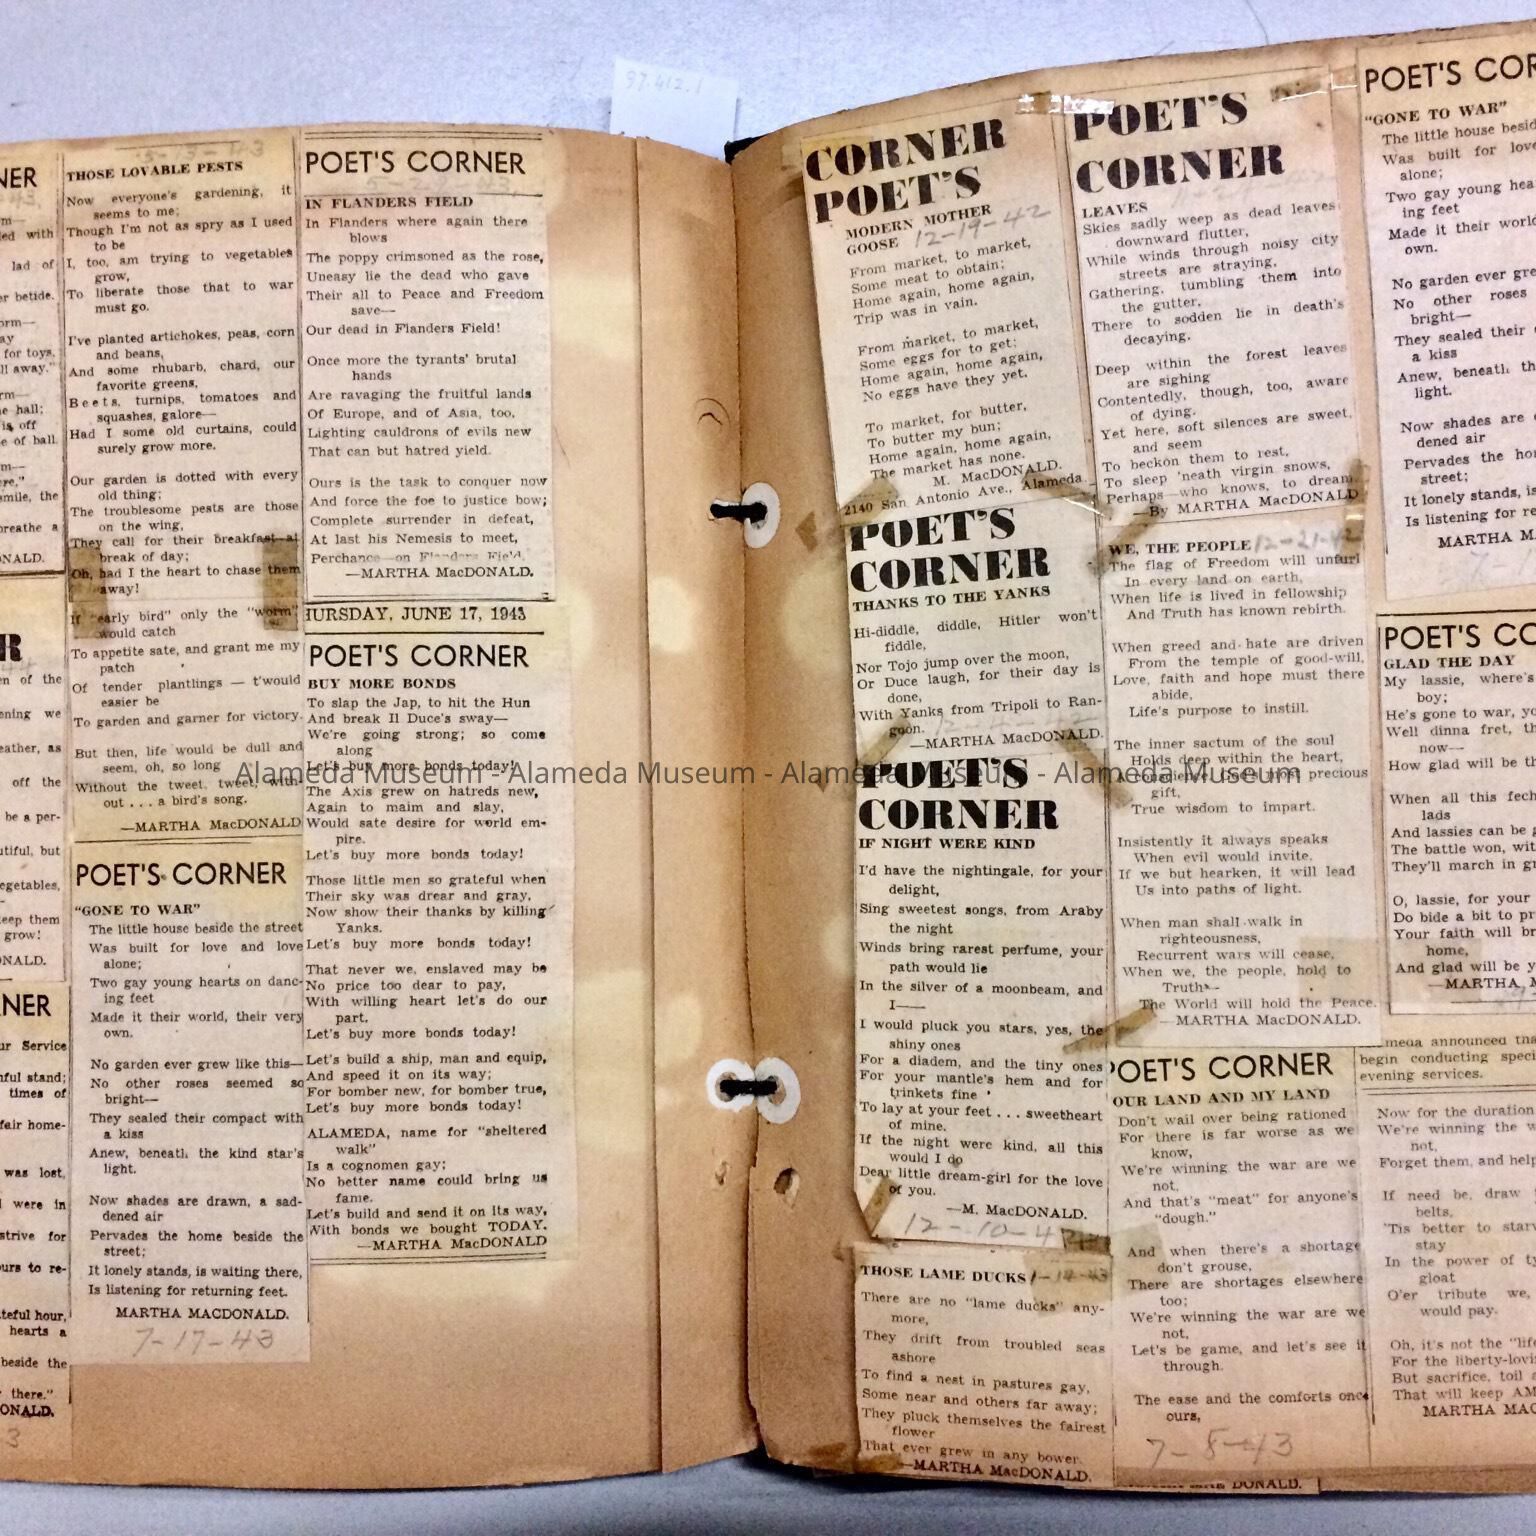 97.412.1
NER
m—
led with
lad of
er betide.
orm—
ay
for toys,
ll away."
rm—
e hall;
is off
e of ball.
m—
ere,"
smile, the
breathe a
ONALD.
R
en of the
ening we
eather, as
off the
be a per-
utiful, but
egetables,
keep them
grow!
ONALD.
NER
ur Service
nful stand;
times of
fair home-
was lost,
were in
strive for
ours to re-
teful hour,
hearts a
beside the
there."
ONALD.
3
THOSE LOVABLE PESTS
Now everyone's gardening, it
seems to me;
Though I'm not as spry as I used
to be
I, too, am trying to vegetables
grow,
To liberate those that to war
must go.
I've planted artichokes, peas, corn
and beans,
And some rhubarb, chard, our
favorite greens,
Beets, turnips, tomatoes and
squashes, galore—
Had I some old curtains, could
surely grow more.
Our garden is dotted with every
old thing;
The troublesome pests are those
on the wing,
They call for their breakfast at
break of day;
Oh, had I the heart to chase them
away!
If "early bird" only the "worm"
would catch
To appetite sate, and grant me my
patch
Of tender plantlings — t'would
easier be
To garden and garner for victory.
But then, life would be dull and
seem, oh, so long
Without the tweet, tweet, with-
out . . . a bird's song.
—MARTHA MacDONALD
POET'S CORNER
"GONE TO WAR"
The little house beside the street
Was built for love and love
alone;
Two gay young hearts on danc-
ing feet
Made it their world, their very
own.
No garden ever grew like this—
No other roses seemed so
bright—
They sealed their compact with
a kiss
Anew, beneath the kind star's
light.
Now shades are drawn, a sad-
dened air
Pervades the home beside the
street;
It lonely stands, is waiting there,
Is listening for returning feet.
MARTHA MACDONALD.
7-17-43
POET'S CORNER
IN FLANDERS FIELD
In Flanders where again there
blows
The poppy crimsoned as the rose,
Uneasy lie the dead who gave
Their all to Peace and Freedom
save—
Our dead in Flanders Field!
Once more the tyrants' brutal
hands
Are ravaging the fruitful lands
Of Europe, and of Asia, too,
Lighting cauldrons of evils new
That can but hatred yield.
Ours is the task to conquer now
And force the foe to justice bow;
Complete surrender in defeat,
At last his Nemesis to meet,
Perchance—on Flanders Field.
—MARTHA MacDONALD.
HURSDAY, JUNE 17, 1943
POET'S CORNER
BUY MORE BONDS
To slap the Jap, to hit the Hun
And break Il Duce's sway—
We're going strong; so come
along
Let's buy more bonds today!
The Axis grew on hatreds new,
Again to maim and slay,
Would sate desire for world em-
pire.
Let's buy more bonds today!
Those little men so grateful when
Their sky was drear and gray,
Now show their thanks by killing
Yanks.
Let's buy more bonds today!
That never we, enslaved may be
No price too dear to pay,
With willing heart let's do our
part.
Let's buy more bonds today!
Let's build a ship, man and equip,
And speed it on its way;
For bomber new, for bomber true,
Let's buy more bonds today!
ALAMEDA, name for "sheltered
walk"
Is a cognomen gay;
No better name could bring us
fame.
Let's build and send it on its way,
With bonds we bought TODAY.
—MARTHA MacDONALD
CORNER
POET'S
MODERN MOTHER
GOOSE 12-19-42
From market, to market,
Some meat to obtain;
Home again, home again,
Trip was in vain.
From market, to market,
Some eggs for to get;
Home again, home again,
No eggs have they yet.
To market, for butter,
To butter my bun;
Home again, home again,
The market has none.
M. MacDONALD.
2140 San Antonio Ave., Alameda.
POET'S
CORNER
THANKS TO THE YANKS
Hi-diddle, diddle, Hitler won't
fiddle,
Nor Tojo jump over the moon,
Or Duce laugh, for their day is
done,
With Yanks from Tripoli to Ran-
goon.
—MARTHA MacDONALD.
POET'S
CORNER
IF NIGHT WERE KIND
I'd have the nightingale, for your
delight,
Sing sweetest songs, from Araby
the night
Winds bring rarest perfume, your
path would lie
In the silver of a moonbeam, and
I——
I would pluck you stars, yes, the
shiny ones
For a diadem, and the tiny ones
For your mantle's hem and for
trinkets fine
To lay at your feet . . . sweetheart
of mine.
If the night were kind, all this
would I do
Dear little dream-girl for the love
of you.
—M. MacDONALD.
12-10-4
THOSE LAME DUCKS 1-14-43
There are no "lame ducks" any-
more,
They drift from troubled seas
ashore
To find a nest in pastures gay,
Some near and others far away;
They pluck themselves the fairest
flower
That ever grew in any bower.
—MARTHA MacDONALD.
POET'S
CORNER
LEAVES
Skies sadly weep as dead leaves
downward flutter,
While winds through noisy city
streets are straying,
Gathering, tumbling them into
the gutter,
There to sodden lie in death's
decaying.
Deep within the forest leaves
are sighing
Contentedly, though, too, aware
of dying.
Yet here, soft silences are sweet,
and seem
To beckon them to rest,
To sleep 'neath virgin snows,
Perhaps—who knows, to dream.
—By MARTHA MacDONALD
WE, THE PEOPLE 12-21-42
The flag of Freedom will unfurl
In every land on earth,
When life is lived in fellowship
And Truth has known rebirth.
When greed and hate are driven
From the temple of good-will,
Love, faith and hope must there
abide,
Life's purpose to instill.
The inner sactum of the soul
Holds deep within the heart,
precious
gift,
True wisdom to impart.
Insistently it always speaks
When evil would invite,
If we but hearken, it will lead
Us into paths of light.
When man shall walk in
righteousness,
Recurrent wars will cease,
When we, the people, hold to
Truth—
The World will hold the Peace.
—MARTHA MacDONALD.
POET'S CORNER
OUR LAND AND MY LAND
Don't wail over being rationed
For there is far worse as we
know,
We're winning the war are we
not,
And that's "meat" for anyone's
"dough."
And when there's a shortage
don't grouse,
There are shortages elsewhere
too;
We're winning the war are we
not,
Let's be game, and let's see it
through.
The ease and the comforts once
ours,
7-8-43
DONALD.
POET'S COR
"GONE TO WAR"
The little house besid
Was built for love
alone;
Two gay young hea
ing feet
Made it their world
own.
No garden ever gre
No other roses
bright—
They sealed their
a kiss
Anew, beneath th
light.
Now shades are
dened air
Pervades the ho
street;
It lonely stands, is
Is listening for re
MARTHA M
POET'S CO
GLAD THE DAY
My lassie, where's
boy;
He's gone to war, yo
Well dinna fret, th
now—
How glad will be th
When all this fech
lads
And lassies can be g
The battle won, wit
They'll march in gr
O, lassie, for your
Do bide a bit to pr
Your faith will br
home,
And glad will be y
—MARTHA M
meda announced tha
begin conducting speci
evening services.
Now for the duration
We're winning the w
not,
Forget them, and help
If need be, draw
belts,
'Tis better to starv
stay
In the power of ty
gloat
O'er tribute we,
would pay.
Oh, it's not the "life
For the liberty-lovi
But sacrifice, toil a
That will keep AM
MARTHA MAC
Alameda Museum - Alameda Museum - Alameda Museum - Alameda Museum